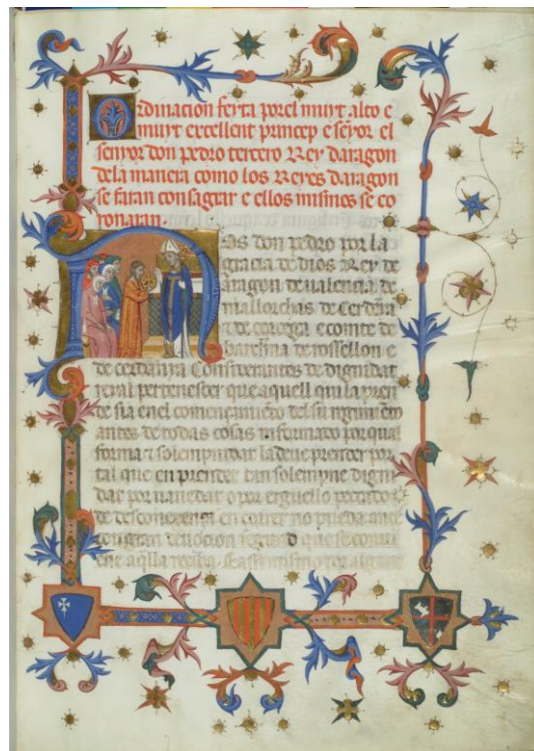 Ordinacion feyta por el muyt alto e
muyt excellent princep e senyor el
senyor don pedro tercero Rey daragon
dela manera como los Reyes daragon
se faran consagrar e ellos mismos se co
ronaran.
Nos don pedro por la
gracia de dios Rey de
aragon de valencia de
mallorchas de Cerdenya
e de corcega e comte de
barcelona de rossellon e
de cerdanya Considerantes de dignidat
reyal pertenescer que aquell qui la pren
de sia en el comencamiento del su
antes de todas cosas informado por qual
forma e solempnidat la deve prender por
tal que en prender tan solempne digni
dat por o por
de en no pueda
devocion segund que se convi
ene aqlla